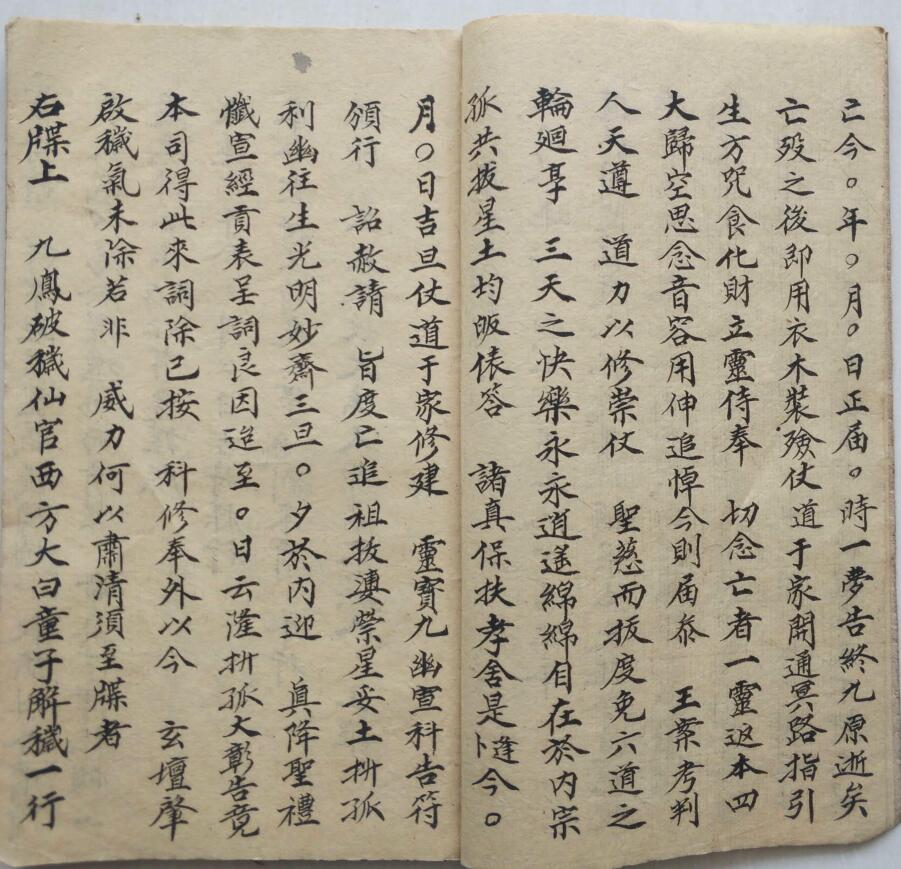 己今〇年〇月〇日正届〇時一夢告終九原逝矣
亡歿之後即用衣木裝殮仗 道于家開通冥路指引
生方咒食化財立靈侍奉 切念亡者一靈返本四
大歸空思念音容用伸追悼今則届 王案考判
人天遵 道力以修崇仗 聖慈而拔度免六道之
輪廻享 三天之快樂永永逍遥綿綿自在於内宗
孤共拔星土均皈俵答 諸真保扶孝舍是卜逢今〇
月〇日吉旦仗道于家修建 靈寶九幽宣科告符
頒行 詔赦請 旨度亡追祖拔 禜星妥土拊孤
利幽往生光明妙齋三旦〇夕於内迎 真降聖禮
懺宣經貢表呈詞良因迨至〇日云滢拊孤大彰告竟
本司得此來詞除已按 科修奉外以今 玄壇肇
啟穢氣未除若非 威力何以肅清須至牒者
右牒上 九鳳破穢仙官西方大白童子解穢一行